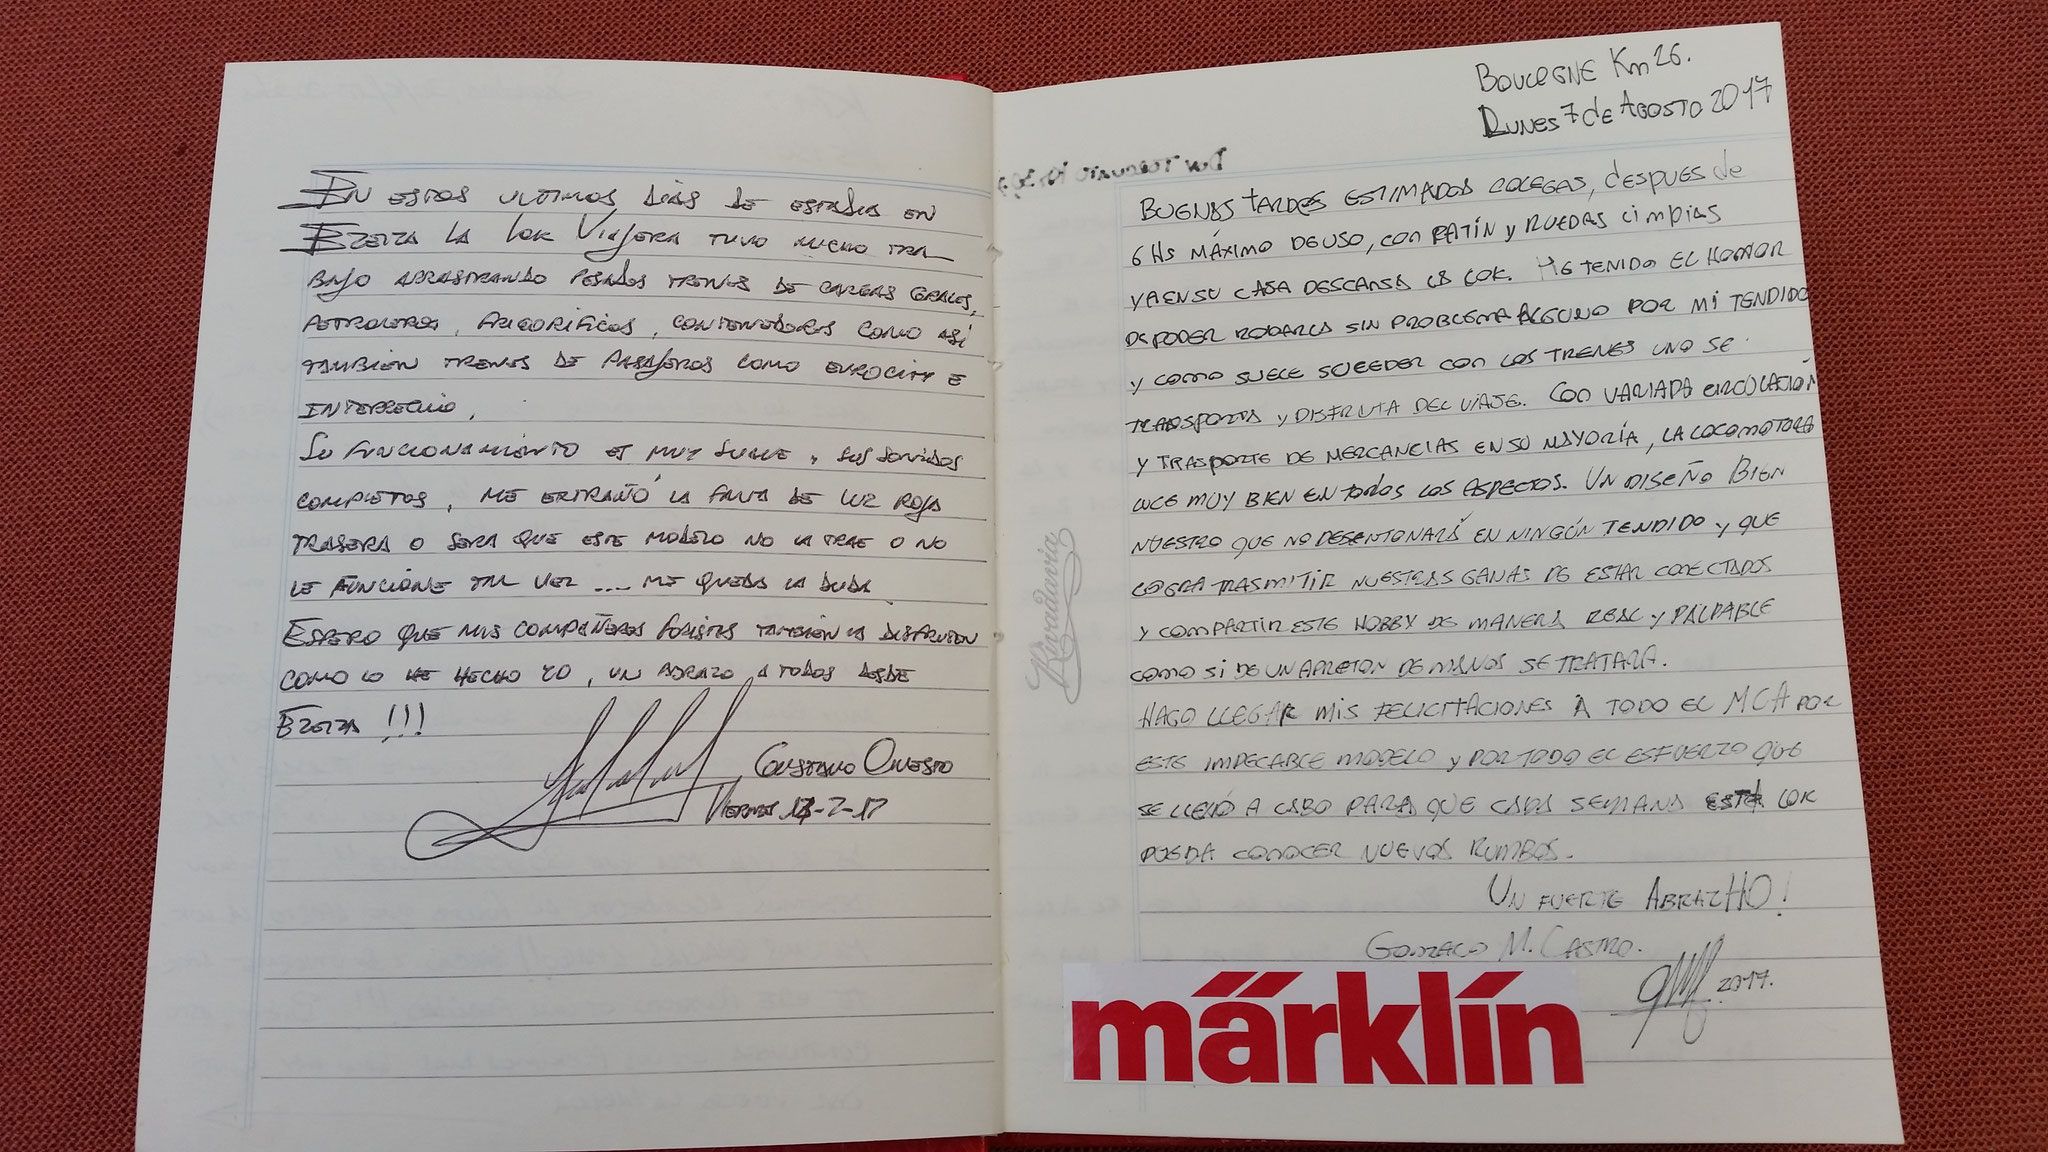 En estos ultimos dias de estadia en
Ezeiza la lok Viajera tuvo mucho tra
bajo arrastrando pesados trenes de cargas grales,
petroleros, frigorificos, contenedores como asi
tambien trenes de pasajeros como eurocity e
interregio.
Su funcionamiento es muy suave y sus sonidos
completos, me extrañó la falta de luz roja
trasera o sera que este modelo no la trae o no
le funcione tal vez .... me queda la duda
Espero que mis compañeros foristas tambien la disfruten
como lo he hecho yo, un abrazo a todos desde
Ezeiza !!!
Gustavo Onesto
Viernes
BOULOGNE Km 26.
LUNES 7 de AGOSTO 2017
BUENAS TARDES ESTIMADOS COLEGAS, despues de
6 Hs MÁXIMO DE USO, con PATÍN y RUEDAS LIMPIAS
YA EN SU CASA DESCANSA LA LOK. HE TENIDO EL HONOR
DE PODER RODARLA SIN PROBLEMA ALGUNO POR MI TENDIDO
Y COMO SUELE SUCEDER CON LOS TRENES UNO SE
TRANSPORTA Y DISFRUTA DEL VIAJE. CON VARIADA CIRCULACIÓN
Y TRASPORTE DE MERCANCIAS EN SU MAYORÍA, LA LOCOMOTORA
LUCE MUY BIEN EN TODOS LOS ASPECTOS. UN DISEÑO BIEN
NUESTRO QUE NO DESENTONARÁ EN NINGÚN TENDIDO Y QUE
LOGRA TRASMITIR NUESTRAS GANAS DE ESTAR CONECTADOS
Y COMPARTIR ESTE HOBBY DE MANERA REAL Y PALPABLE
COMO SI DE UN APRETON DE MANOS SE TRATARA.
HAGO LLEGAR MIS FELICITACIONES A TODO EL MCA POR
ESTE IMPECABLE MODELO Y POR TODO EL ESFUERZO QUE
SE LLEVÓ A CABO PARA QUE CADA SEMANA ESTA LOK
PUEDA CONOCER NUEVOS RUMBOS.
UN FUERTE ABRAZHO!
GONZALO M. CASTRO.
2017.
märklín
Rivadavia